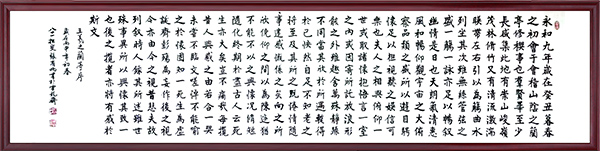 永和九年歲在癸丑暮春
之初會于會稽山陰之蘭
亭修禊事也羣賢畢至少
長咸集此地有崇山峻嶺
茂林脩竹又有清流激湍
暎帶左右引以為流觴曲水
列坐其次雖無絲竹管弦之
盛一觴一詠亦足以暢敘
幽情是日也天朗氣清惠
風和暢仰觀宇宙之大俯
察品類之盛所以遊目騁
懷足以極視聽之娛信可
樂也夫人之相與俯仰一
世或取諸懷抱悟言一室
之內或因寄所託放浪形
骸之外雖趣舍萬殊靜躁
不同當其欣於所遇暫得
於己怏然自足不知老之
將至及其所之既倦情隨
事遷感慨係之矣向之所
欣俛仰之間以為陳迹猶
不能不以之興懷況脩短
隨化終期於盡古人云死
生亦大矣豈不痛哉每攬
昔人興感之由若合一契
未嘗不臨文嗟悼不能喻
之於懷固知一死生為虛
誕齊彭殤為妄作後之視
今亦由今之視昔悲夫故
列敘時人錄其所述雖世
殊事異所以興懷其致一
也後之攬者亦將有感於
斯文
王羲之蘭亭序